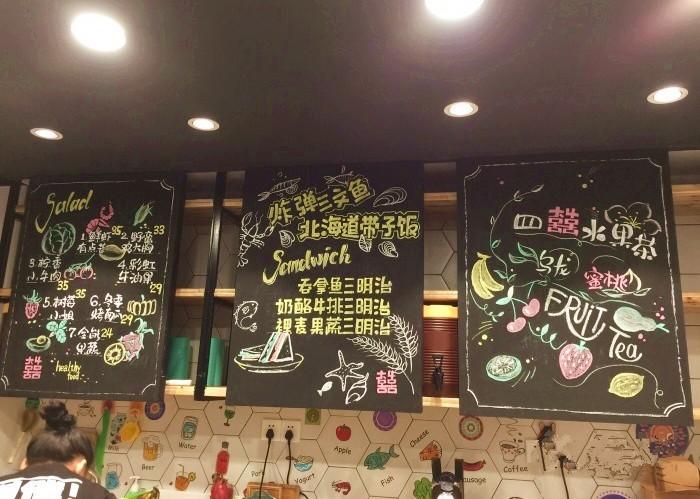 Salad
1.鲜虾 35
有点芒
2.野蛮 33
鸡大胸
3.椒香
小牛肉 35
4.彩虹
牛油果 29
5.树莓 35
小姐
6.多麦
烤南瓜 29
7.全能 24
果蔬
囍
healthy
food
炸弹三文鱼
北海道带子饭
Sandwich
吞拿鱼三明治
奶酪牛排三明治
裸麦果蔬三明治
囍
四囍水果茶
乌龙
蜜桃
FRUIT
Tea
Milk
Beer
Water
Yogurt
Apple
Fish
Cheese
Sausage
Coffee